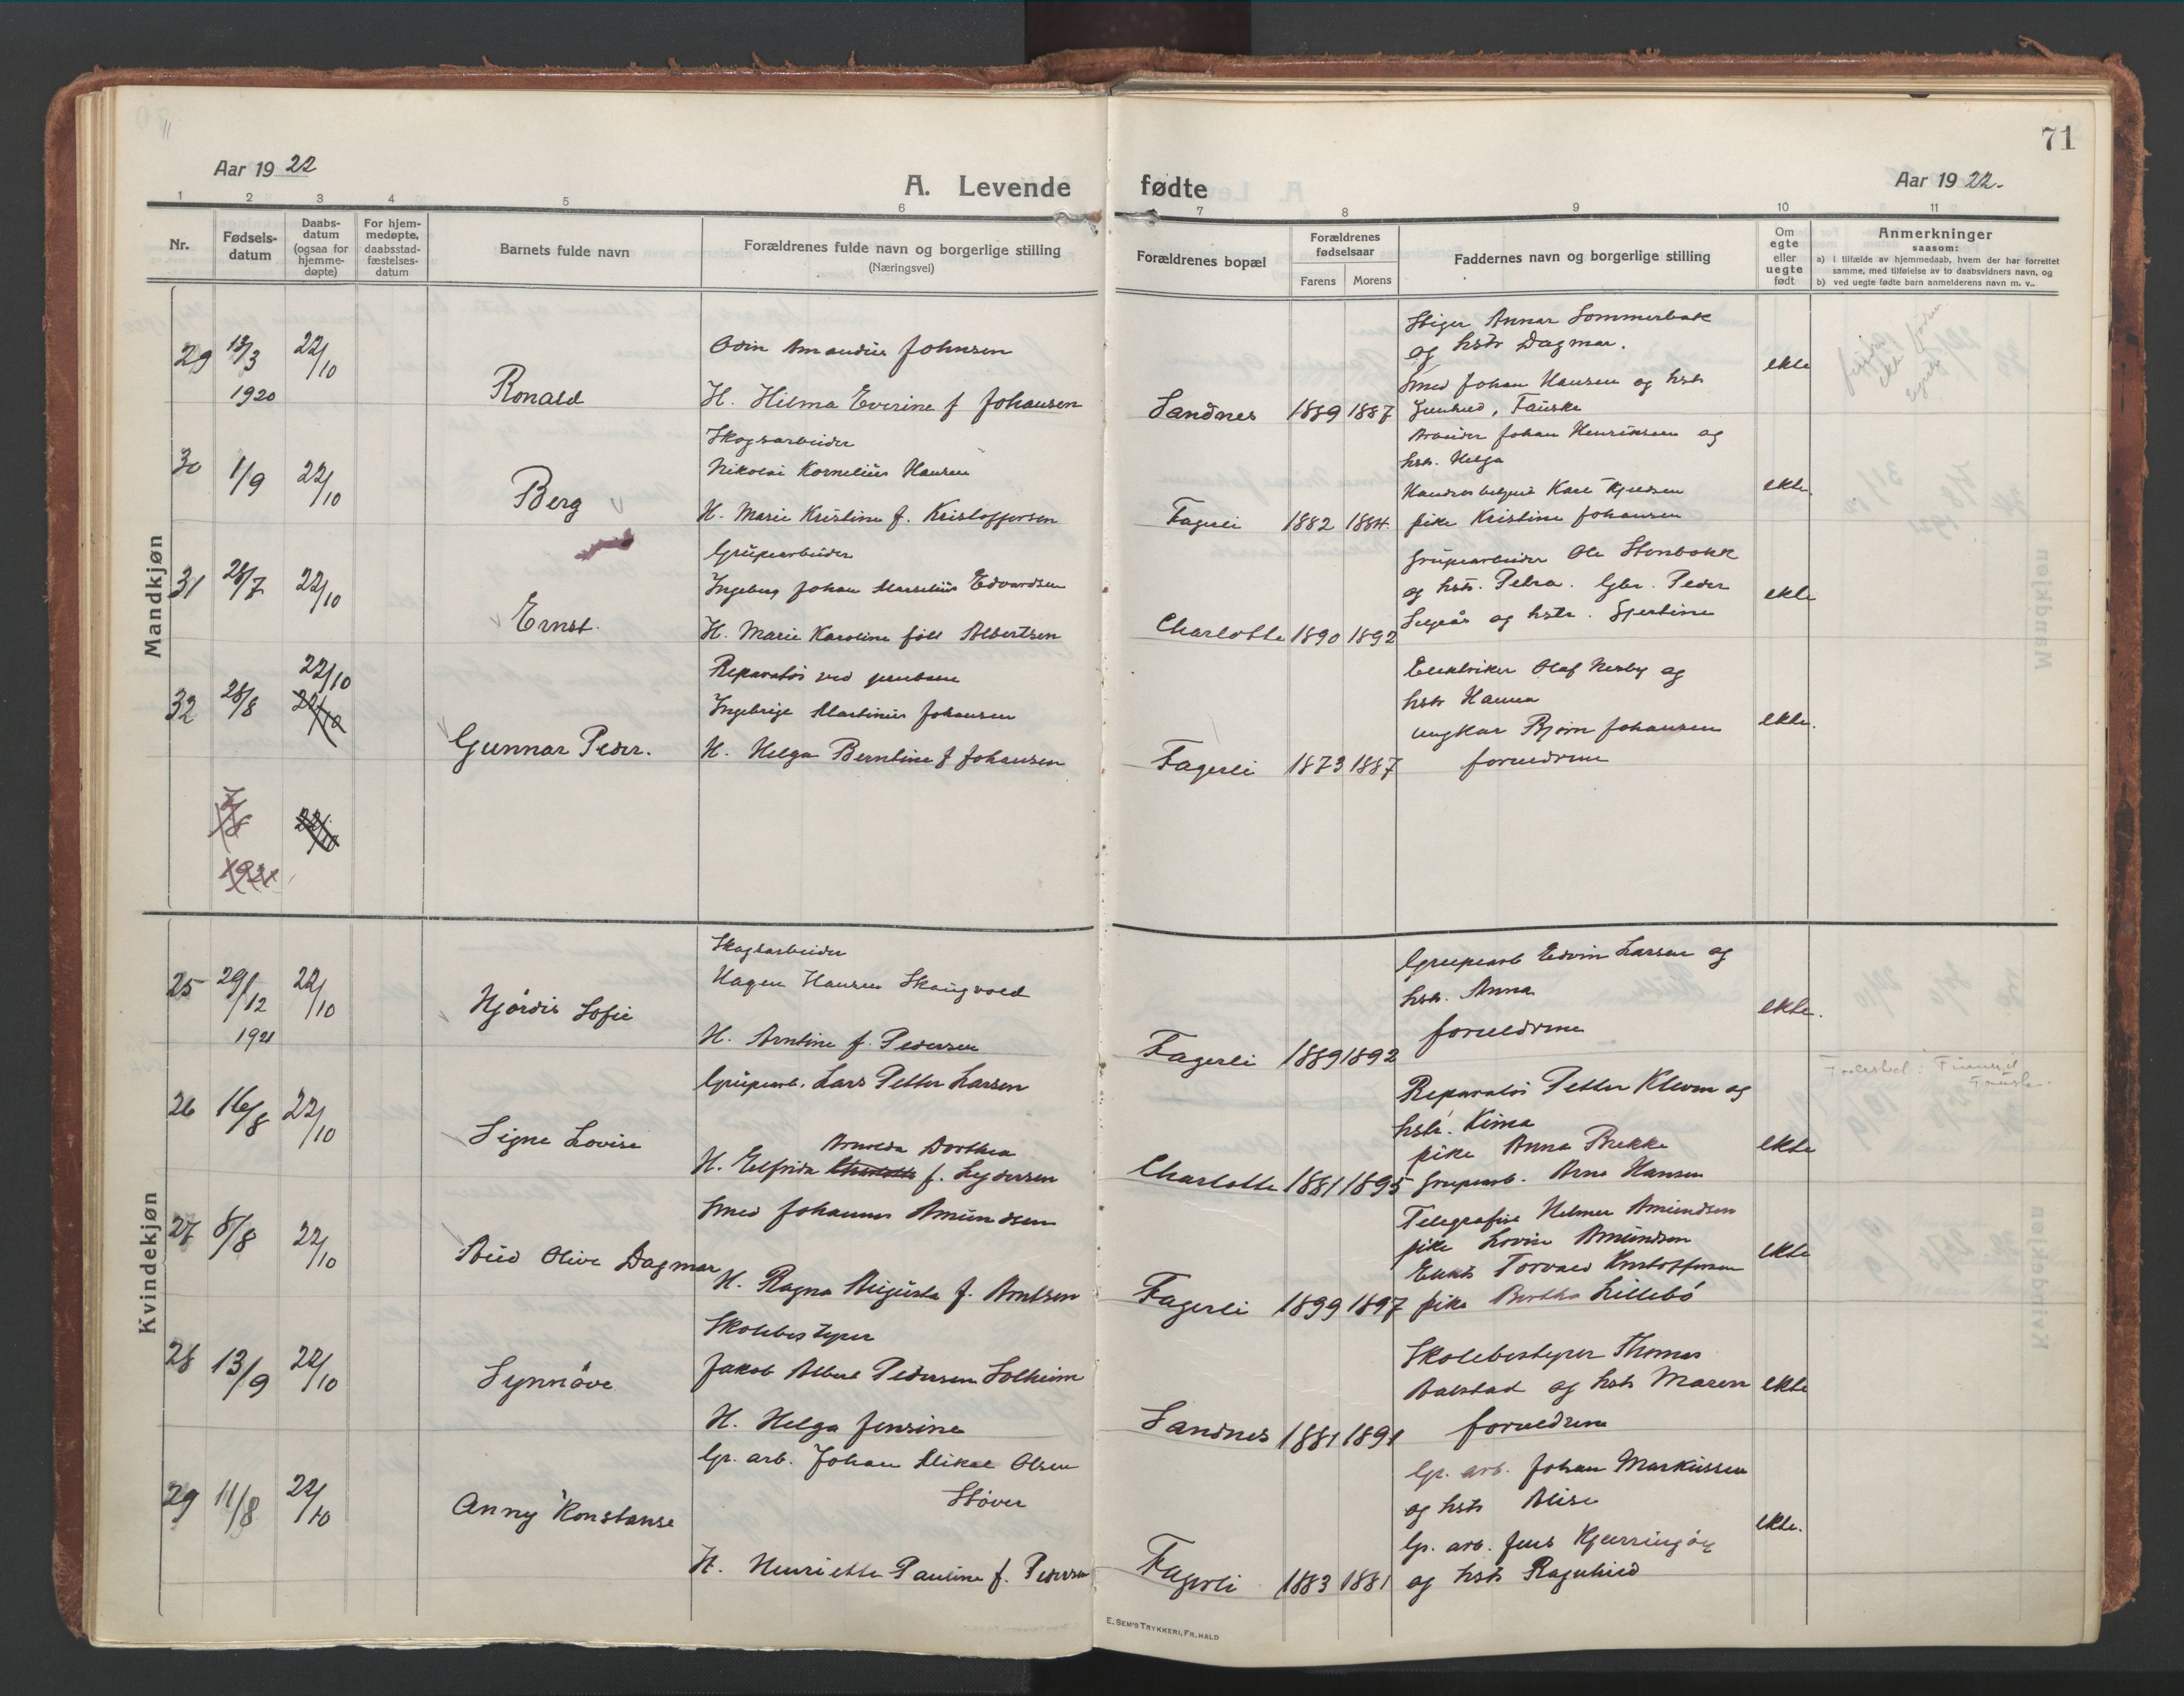 71
Aar 1922
A. Levende fødte
Aar 1922.
1 2 3 4 5 6 7 8 9 10 11
Nr.
Fødsels-
datum
Daabs-
datum
(ogsaa for
hjemme-
døpte)
For hjem-
medøpte,
daabsstad-
fæstelses-
datum
Barnets fulde navn
Forældrenes fulde navn og borgerlige stilling
(Næringsvei)
Forældrenes bopæl
Forældrenes
fødselsaar
Farens Morens
Faddernes navn og borgerlige stilling
Om
egte
eller
uegte
født
Anmerkninger
saasom:
a) i tilfælde av hjemmedaab, hvem der har forrettet
samme, med tilføielse av to daabsvidners navn, og
b) ved uegte fødte barn anmelderens navn m. v..
Mandkjøn
29 13/3 22/10
1920
Ronald
Odin Amandus Johnsen
H. Hilma Everine f Johansen
Sandnes 1889 1887
Stiger Annar Sommerbak
og hstr Dagmar.
Smed Johan Hansen og hstr
Gunhild, Fauske
ekte
30 1/9 22/10
Berg
Skogsarbeider
Nikolai Kornelius Hansen
H. Marie Kristine f. Kristoffersen
Fagerli 1882 1884.
Arbeider Johan Henriksen og
hstr. Helga
Karl Kjeldsen
pike Kristine Johansen
ekte.
31 28/7 22/10
Ernst.
Grubearbeider
Ingeberg Johan Marselius Edvardsen
H. Marie Karoline föll Albertsen
Charlotte 1890 1892
Grubearbeider Ole Stenbakk
og hstr. Petra. Gbr. Peder
og hstr. Gjertine
ekte
32 28/8 22/10
22/10
Gunnar Peder.
Reparatör ved jernbane
Ingebrigt Martinus Johansen
H. Helga Berntine f Johansen
Fagerli 1873 1887
Elektriker Olaf Nesby og
hstr Hanna
ungkar Bjørn Johansen
foreldrene
ekte.
22/10
1921
Kvindekjøn
25 29/12 22/10
1921
Hjördis Sofie
Skogsarbeider
Hagen Hansen Skaugvold
H. Arntine f. Pedersen
Fagerli 1889 1892
Grubearb Edvin Larsen og
hstr. Anna
foreldrene
ekte.
26 16/8 22/10
Signe Lovise
Grubearb. Lars Petter Larsen
Arnolda Dorthea
H. Elfrida Charlotte f. Lydersen
Charlotte 1881 1895
Reparatör Petter Kleven og
hstr. Kima
pike Anna Brekke
Grubearb. Arne Hansen
ekte
27 8/8 22/10
Aud Olive Dagmar
Smed Johannes Amundsen
H. Ragna Augusta f. Arntsen
Fagerli 1899 1897
Telegrafist Helmer Amundsen
pike Lovise Amundsen
Torvald Kristoffersen
pike Bertha Lillebö
ekte
28 13/9 22/10
Synnöve
Skolebestyrer
Jakob Albert Pedersen Solheim
H. Helga Jensine
Sandnes 1881 1891
Skolebestyrer Thomas
Balstad og hstr Maren
foreldrene
ekte
29 11/8 22/10
Anny Konstanse
Gr. arb. Johan Mikal Olsen
Støver
H. Henriette Pauline f. Pedersen
Fagerli 1883 1881
Gr. arb. Johan Markussen
og hstr Alise
Gr. arb. Jens Kjerringöy
og hstr Ragnhild
ekte.
E. SEM'S TRYKKERI, FR.HALD